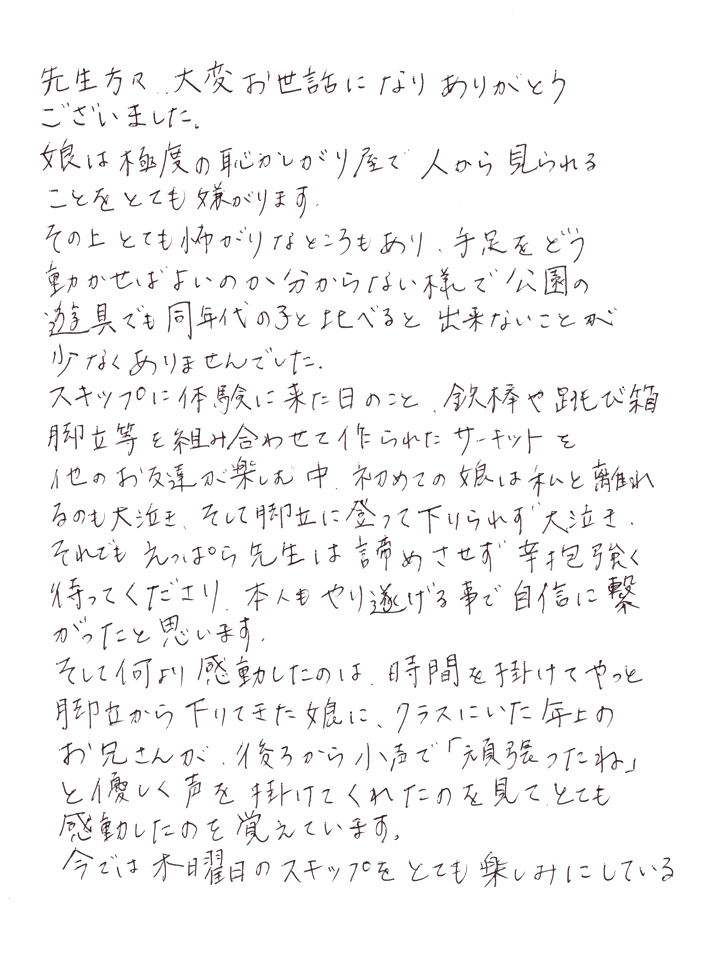 先生方々、大変お世話になりありがとう
ございました。
娘は極度の恥かしがり屋で人から見られる
ことをとても嫌がります。
その上とても怖がりなところもあり、手足をどう
動かせばよいのか分からない様で公園の
遊具でも同年代の子と比べると出来ないことが
少なくありませんでした。
スキップに体験に来た日のこと、鉄棒や跳び箱
脚立等を組み合わせて作られたサーキットを
他のお友達が楽しむ中、初めての娘は私と離れ
るのも大泣き、そして脚立に登って下りられず大泣き、
それでもえっぱら先生は諦めさせず辛抱強く
待ってくださり、本人もやり遂げる事で自信に繋
がったと思います。
そして何より感動したのは、時間を掛けてやっと
脚立から下りてきた娘に、クラスにいた年上の
お兄さんが、後ろから小声で「頑張ったね」
と優しく声を掛けてくれたのを見て、とても
感動したのを覚えています。
今では木曜日のスキップをとても楽しみにしている